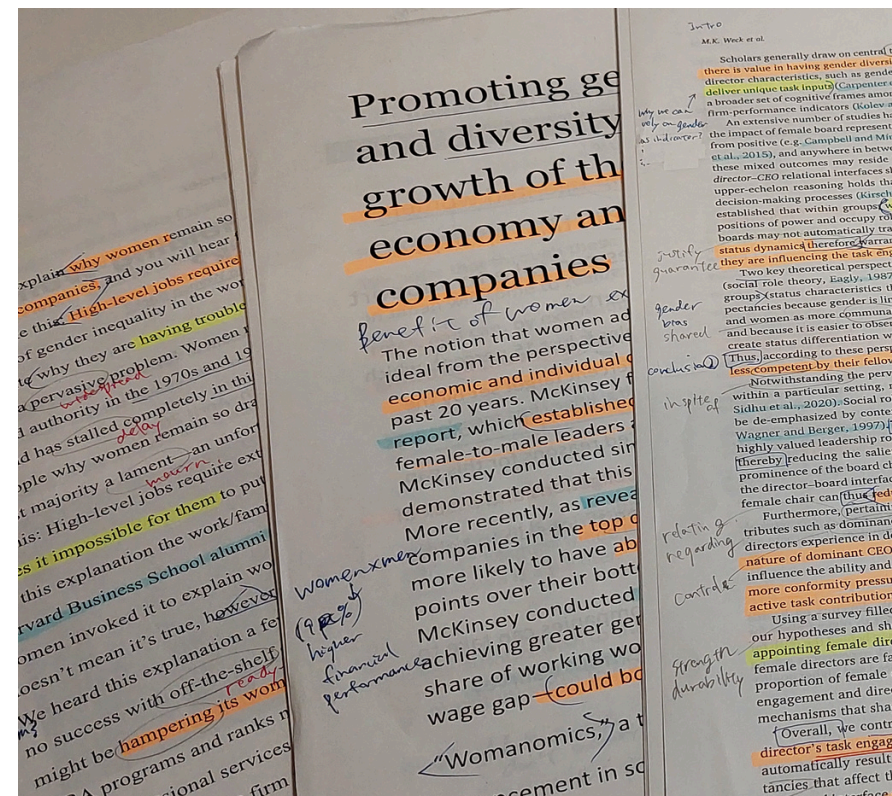 xplain why women remain so
companies, and you will hear
e this: High-level jobs require
of gender inequality in the wor
to why they are having trouble
a pervasive problem. Women
widespread
d authority in the 1970s and 19
d has stalled completely in thi
delay
ple why women remain so dra
t majority a lament—an unfor
mourn
his: High-level jobs require ext
es it impossible for them to put
this explanation the work/fam
rvard Business School alumni
omen invoked it to explain wo
oesn't mean it's true, however
We heard this explanation a fe
no success with off-the-shelf
ready-
might be hampering its wom
A programs and ranks
sional services
firm
Promoting ge
and diversity
growth of th
economy an
companies
Benefit of women ex
The notion that women ad
ideal from the perspective
economic and individual
past 20 years. McKinsey f
report, which established
female-to-male leaders
McKinsey conducted sin
demonstrated that this
More recently, as revea
companies in the top q
more likely to have ab
points over their bott
McKinsey conducted
achieving greater ger
share of working wo
wage gap—could bo
women x men
higher
financial
performance
"Womanomics," a t
cement in sc
Intro
M.K. Weck et al.
Scholars generally draw on central t
there is value in having gender diversi
director characteristics, such as gende
deliver unique task inputs (Carpenter
a broader set of cognitive frames amon
firm-performance indicators (Kolev a
why we can
rely on gender
as indicator?
An extensive number of studies h
the impact of female board represent
from positive (e.g. Campbell and Mi
et al., 2015), and anywhere in betwe
these mixed outcomes may reside
director–CEO relational interfaces s
upper-echelon reasoning holds tha
decision-making processes (Kirsch
established that within groups,
positions of power and occupy ro
boards may not automatically tra
status dynamics therefore warra
they are influencing the task en
justify
guarantee
Two key theoretical perspect
(social role theory, Eagly, 1987
groups (status characteristics t
pectancies because gender is li
and women as more commun
and because it is easier to obse
create status differentiation w
gender
bias
shared
conclusion
Thus, according to these persp
less competent by their fellow
Notwithstanding the perv
within a particular setting,
inspite
of
Sidhu et al., 2020). Social ro
be de-emphasized by conte
Wagner and Berger, 1997).
highly valued leadership r
thereby reducing the salie
prominence of the board c
the director–board interfa
female chair can thus red
Furthermore, pertain
relating
regarding
tributes such as dominan
directors experience in de
nature of dominant CEO
influence the ability and
more conformity pressu
active task contribution
Control
Using a survey filled
our hypotheses and sh
appointing female dir
female directors are fa
proportion of female
engagement and direc
mechanisms that sha
strength
durability
Overall, we contr
director's task engag
automatically result
tancies that affect th